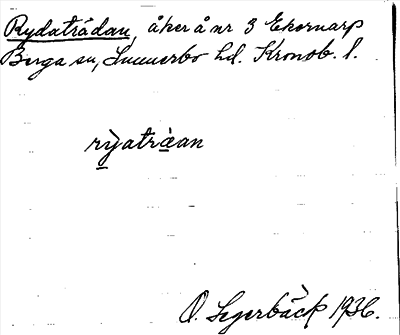 Rydaträdan, åker å nr 3 Ekornarp
Berga sn, Sunnerbo hd. Kronob. l.
rỳatràan
O. Segerbäck 1936.